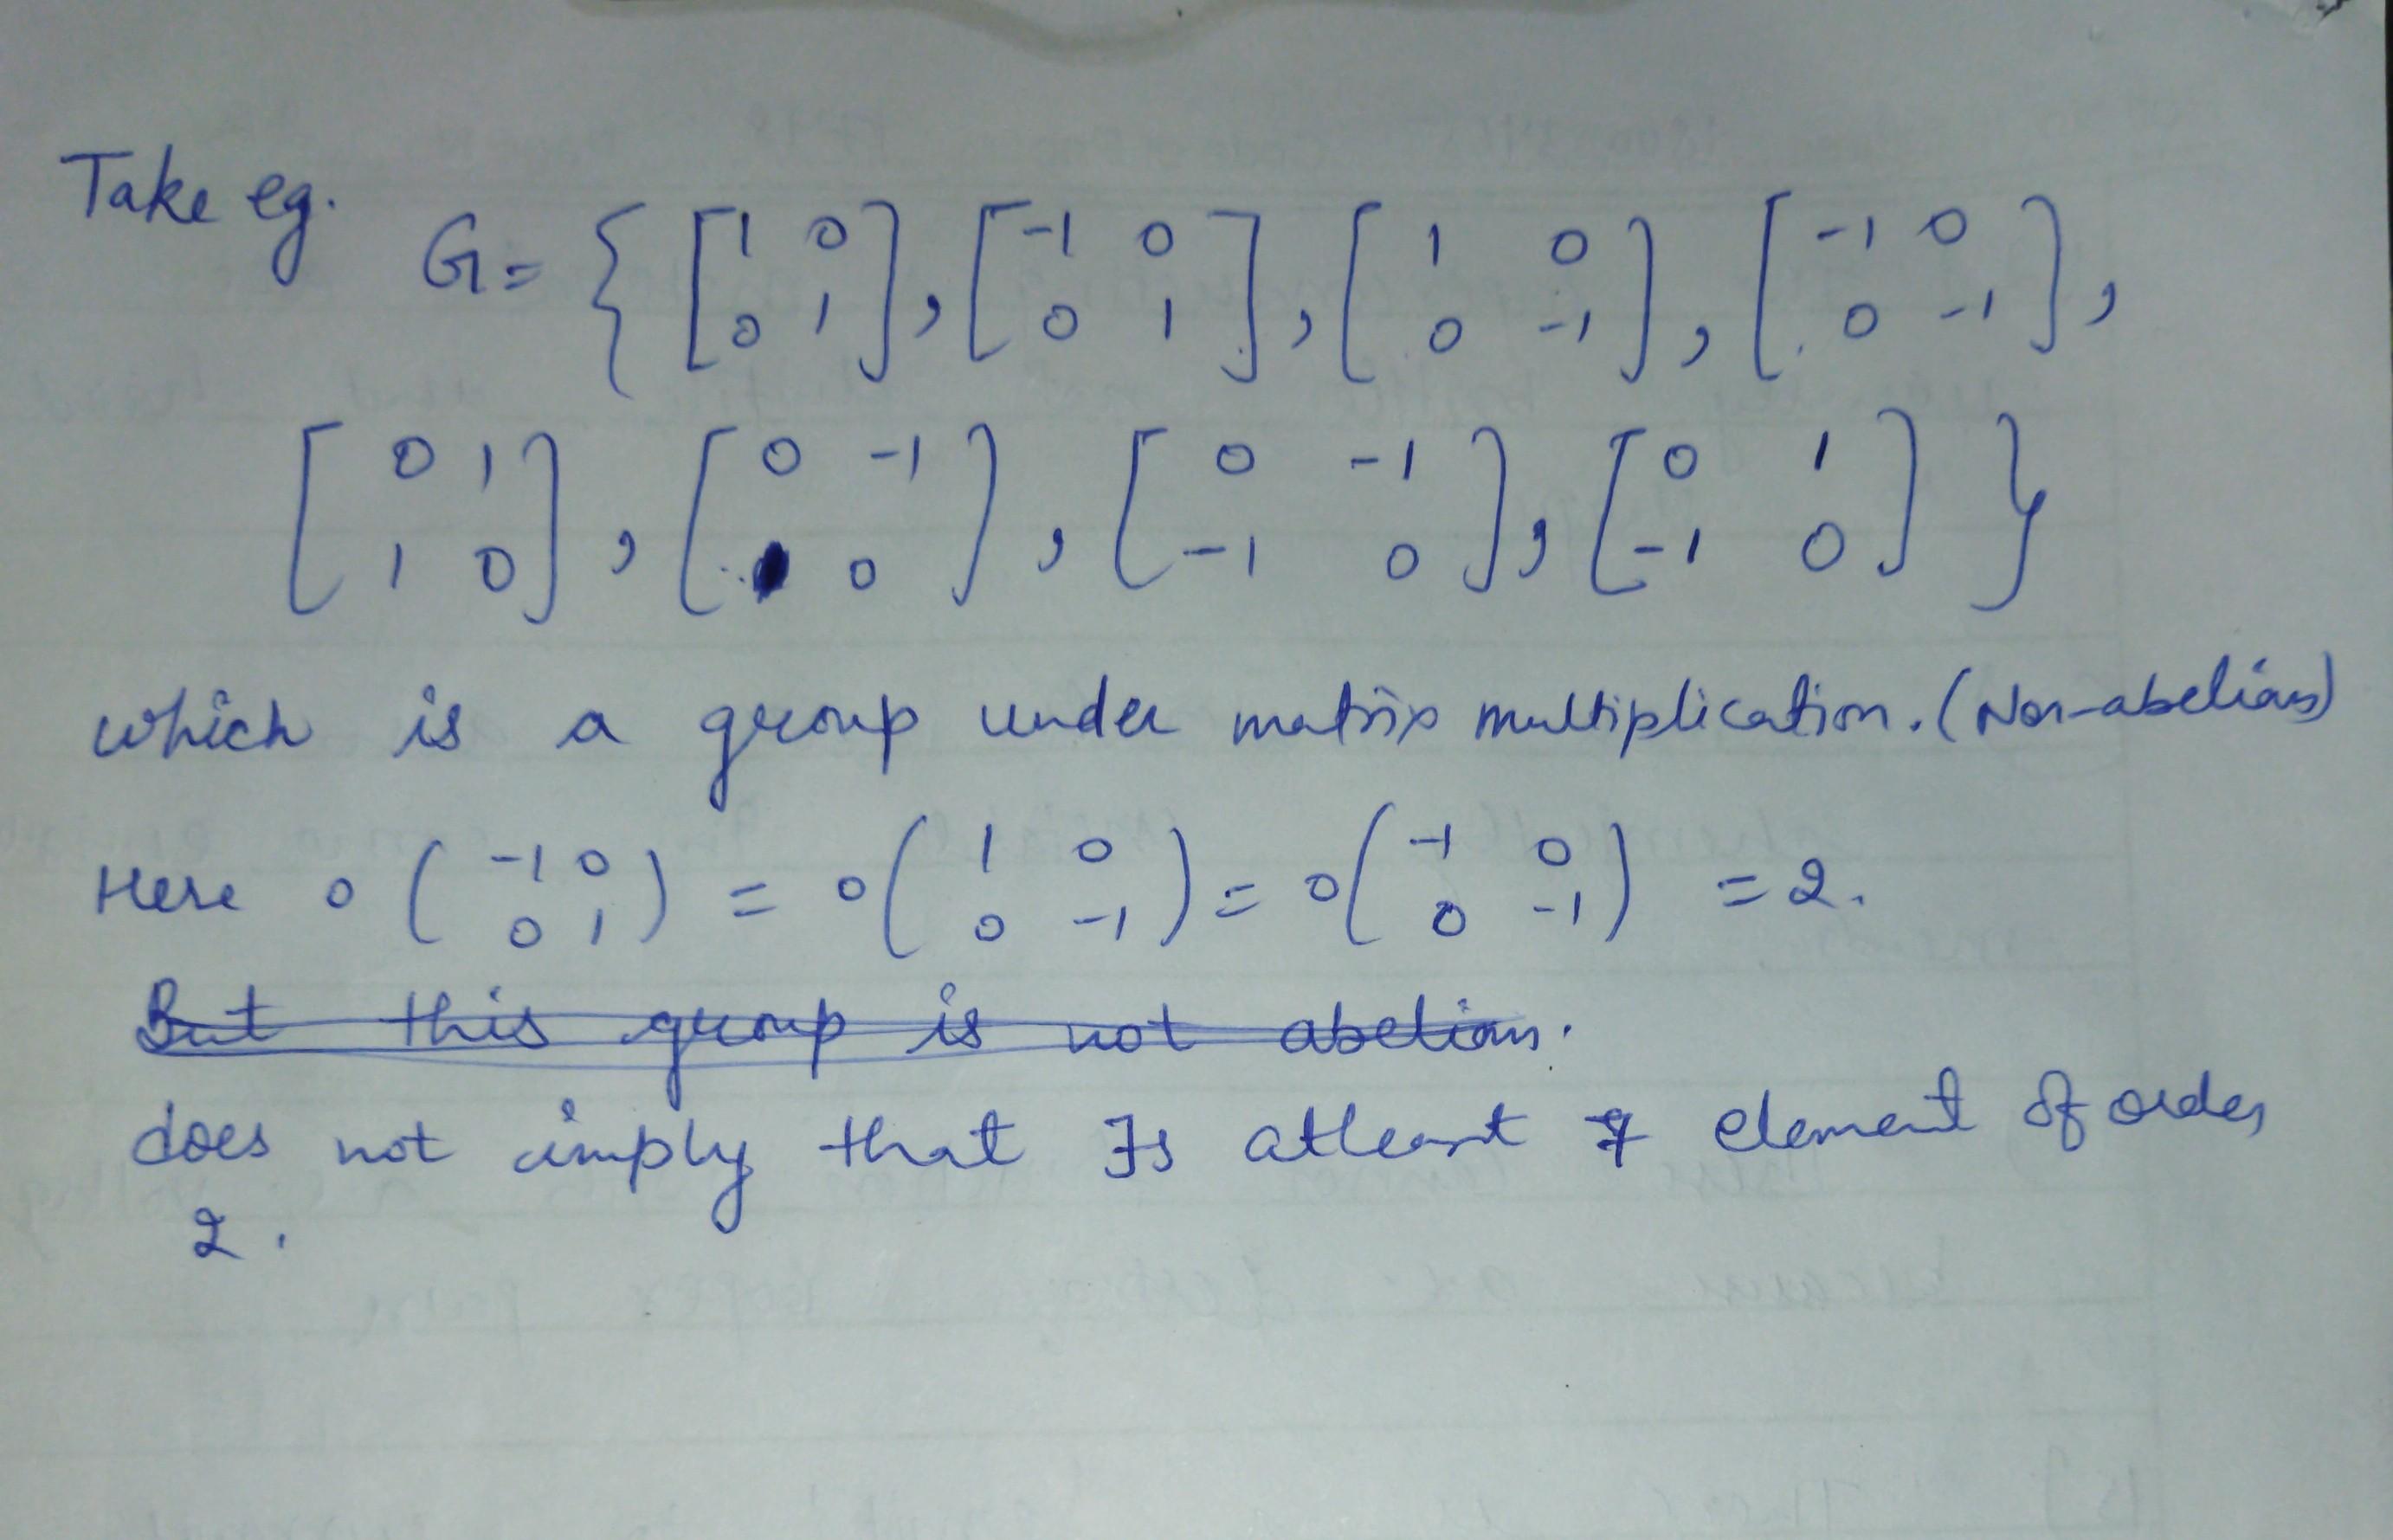 Take eg.
G = { [ 1 0 ; 0 1 ], [ -1 0 ; 0 1 ], [ 1 0 ; 0 -1 ], [ -1 0 ; 0 -1 ],
[ 0 1 ; 1 0 ], [ 0 -1 ; 0 ], [ 0 -1 ; -1 0 ], [ 0 1 ; -1 0 ] }
which is a group under matrix multiplication. (Non-abelian)
Here o( -1 0 ; 0 1 ) = o( 1 0 ; 0 -1 ) = o( -1 0 ; 0 -1 ) = 2.
But this group is not abelian.
does not imply that ∃s atleast 7 element of order
2.